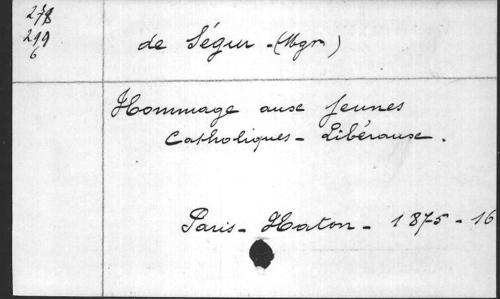 278
299
6
de Ségur - (Mgr)
Hommage aux Jeunes
Catholiques - Libéraux.
Paris - Haton - 1875 - 16